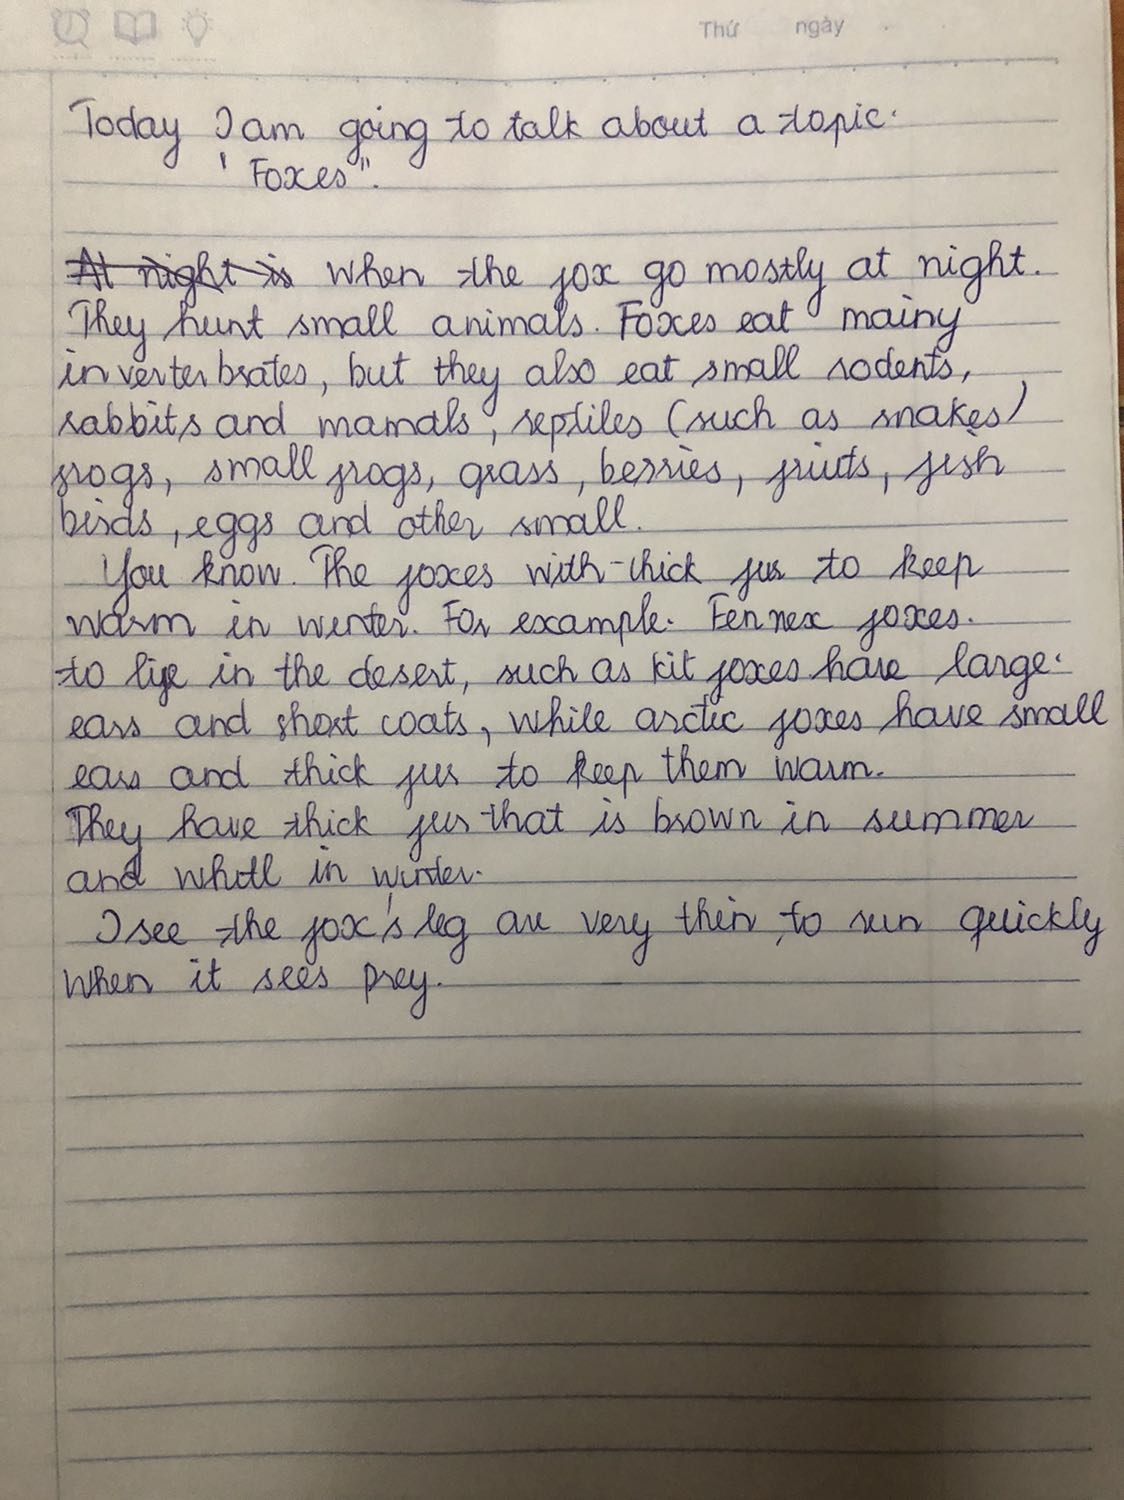 Thứ ngày
Today I am going to talk about a topic.
"Foxes".
At night is when the fox go mostly at night.
They hunt small animals. Foxes eat mainy
inverterbrates, but they also eat small rodents,
rabbits and mamals, reptiles (such as snakes)
frogs, small frogs, grass, berries, friuts, fish
birds, eggs and other small.
You know. The foxes with thick fur to keep
warm in winter. For example. Fennex foxes.
to live in the desert, such as kit foxes have large.
ears and short coats, while arctic foxes have small
ears and thick fur to keep them warm.
They have thick fur that is brown in summer
and in winter.
I see the fox's leg are very thin to run quickly
when it sees prey.